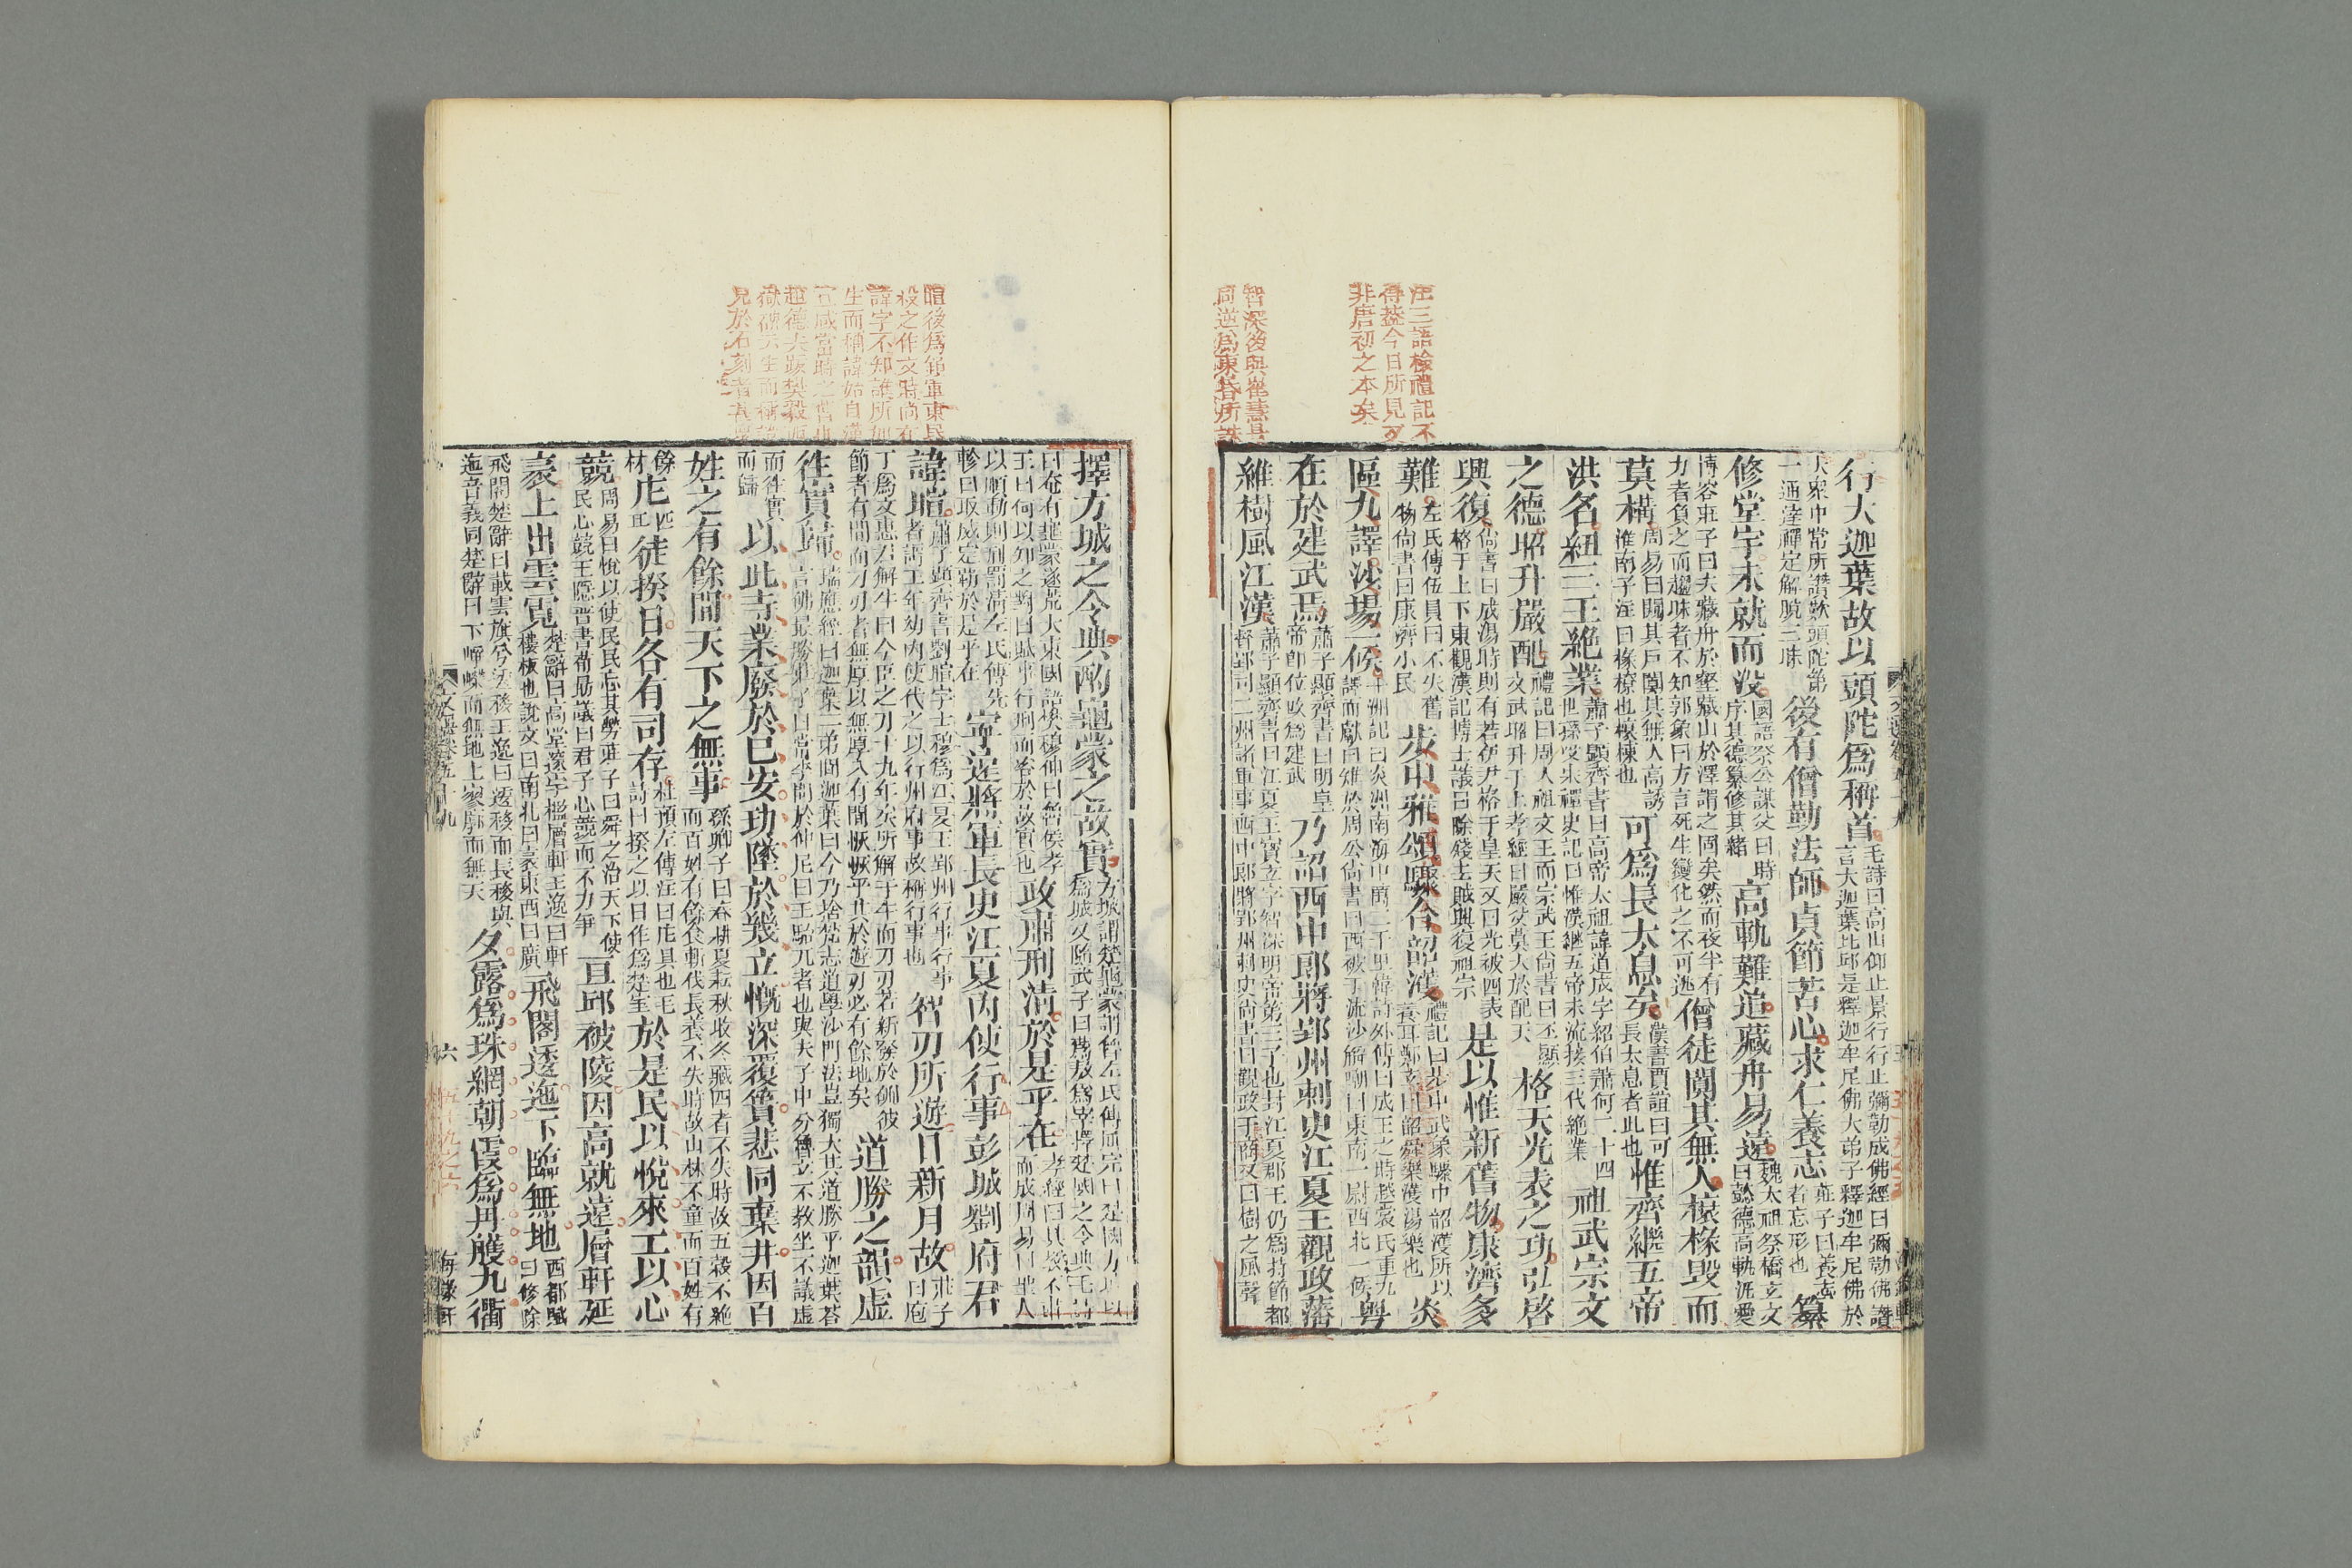 注三語檢禮記不
得蓋今日所見又
非唐初之本矣
智深後與崔慧景
同逆爲東昏所誅
行大迦葉故以頭陀爲稱首毛詩曰高山仰止景行行止彌勒成佛經曰彌勒佛讚言大迦葉比邱是釋迦牟尼佛大弟子釋迦牟尼佛於
大衆中常所讚歎頭陀第一通達禪定解脫三昧後有僧勤法師貞節苦心求仁養志莊子曰養志者忘形也纂
修堂宇未就而没國語祭公謀父曰時序其德纂修其緒高軌難追藏舟易遠魏太祖祭橋玄文曰懿德高軌汎愛
博容莊子曰夫藏舟於壑藏山於澤謂之固矣然而夜半有力者負之而趨昧者不知郭象曰方言死生變化之不可逃僧徒闃其無人榱椽毁而
莫構周易曰闚其戶闃其無人高誘淮南子注曰椽橑也榱棟也可爲長太息矣漢書賈誼曰可長太息者此也惟齊繼五帝
洪名紐三王絶業蕭子顯齊書曰高帝太祖諱道成字紹伯蕭何二十四世孫受宋禪史記曰惟漢繼五帝末流接三代絶業祖武宗文
之德昭升嚴配禮記曰周人祖文王而宗武王尚書曰丕顯文武昭升于上孝經曰嚴父莫大於配天格天光表之功弘啓
興復尚書曰成湯時則有若伊尹格于皇天又曰光被四表格于上下東觀漢記博士議曰除殘去賊興復祖宗是以惟新舊物康濟多
難左氏傳伍員曰不失舊物尚書曰康濟小民步中雅頌驟合韶濩禮記曰步中武象驟中韶濩所以養耳鄭玄曰韶舜樂濩湯樂也炎
區九譯沙場一候十洲記曰炎洲南海中萬二千里韓詩外傳曰成王之時越裳氏重九譯而獻白雉於周公尚書曰西被于流沙解嘲曰東南一尉西北一候粤
在於建武焉蕭子顯齊書曰明皇帝卽位改爲建武乃詔西中郎將郢州刺史江夏王觀政藩
維樹風江漢蕭子顯齊書曰江夏王寶玄字智深明帝第三子也封江夏郡王仍爲持節都督郢司二州諸軍事西中郎將郢州刺史尚書曰觀政于商又曰樹之風聲
暄後爲領軍東昏
殺之作文時尚在
諱字不知誰所加
生而稱諱始自漢
見於石刻者
擇方城之令典酌龜蒙之故實方城謂楚龜蒙謂魯左氏傳屈完曰楚國方城以爲城又隨武子曰蔿敖爲宰擇楚國之令典毛詩
曰奄有龜蒙遂荒大東國語樊穆仲曰魯侯孝王曰何以知之對曰賦事行刑而咨於故實也政肅刑清於是乎在孝經曰其教不肅而成周易曰聖人
以順動則刑罰清左氏傳先軫曰取威定霸於是乎在寧遠將軍長史江夏内使行事彭城劉府君
諱暄蕭子顯齊書劉暄字士穆爲江夏王郢州行事行事者謂王年幼内使代之以行州府事故稱行事也智刃所遊日新月故莊子曰庖
丁爲文惠君解牛曰今臣之刀十九年矣所解千牛而刀刃若新發於硎彼節者有間而刀刃者無厚以無厚入有間恢恢乎其於遊刃必有餘地矣道勝之韻虚
往實歸瑞應經曰迦葉二弟問迦葉曰今乃捨梵志道學沙門法豈獨大其道勝乎迦葉荅言佛最勝弟子曰常季問於仲尼曰王駘兀者也與夫子中分魯立不教坐不議虚
而往實而歸以此寺業廢於已安功墜於幾立慨深覆簣悲同棄井因百
姓之有餘閒天下之無事孫卿子曰春耕夏耘秋收冬藏四者不失時故五穀不絶而百姓有餘食斬伐長養不失時故山林不童而百姓有
餘材庀匹徒揆日各有司存杜預左傳注曰庀具也毛詩曰揆之以日作爲楚室於是民以悅來工以心
競周易曰悅以使民民忘其勞莊子曰舜之治天下使民心競王隱晉書荀勗議曰君子心競而不力爭亘邱被陵因高就遠層軒延
袤上出雲霓楚辭曰高堂邃宇檻層軒王逸曰軒樓板也說文曰南北曰袤東西曰廣飛閣逶迤下臨無地西都賦曰修除
飛閣楚辭曰載雲旗兮逶移王逸曰逶移而長移與迤音義同楚辭曰下崢嶸而無地上寥廓而無天夕露爲珠網朝霞爲丹雘九衢
文選卷五十九
六
海錄軒